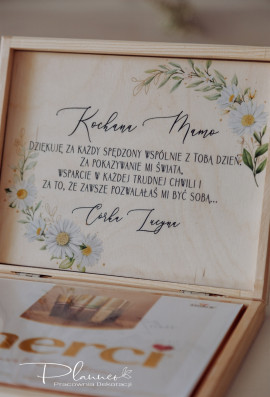 Kochana Mamo
DZIĘKUJĘ ZA KAŻDY SPĘDZONY WSPÓLNIE Z TOBĄ DZIEŃ,
ZA POKAZYWANIE MI ŚWIATA,
WSPARCIE W KAŻDEJ TRUDNEJ CHWILI I
ZA TO, ŻE ZAWSZE POZWALAŁAŚ MI BYĆ SOBĄ,...
Córka Lucyna
merci
Planner
Pracownia Dekoracji